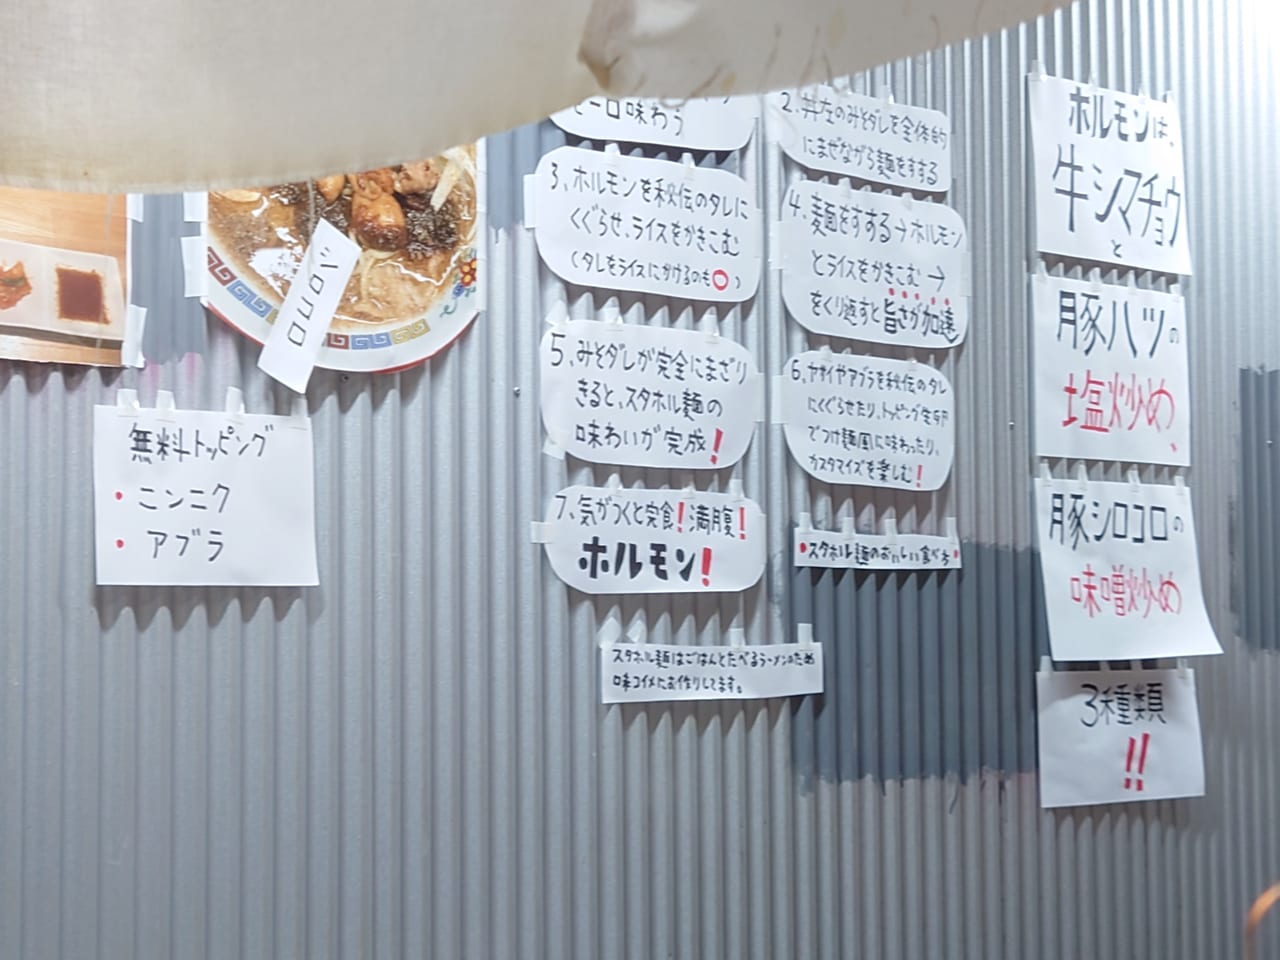 一口味わう
2、丼左のみそダレを全体的
にまぜながら麺をすする
3、ホルモンを秘伝のタレに
くぐらせ、ライスをかきこむ
(タレをライスにかけるのも○)
4、麺をすする→ホルモン
とライスをかきこむ→
をくり返すと旨さが加速
5、みそダレが完全にまざり
きると、スタホル麺の
味わいが完成!
6、ヤサイやアブラを秘伝のタレ
にくぐらせたり、トッピング生
でつけ麺風に味わったり、
カスタマイズを楽しむ!
7、気がつくと完食!満腹!
ホルモン!
・スタホル麺のおいしい食べ方・
スタホル麺はごはんとたべるラーメンのため
味コイメにお作りしてます。
シロコロ
無料トッピング
・ニンニク
・アブラ
ホルモンは、
牛シマチョウ
と
豚ハツの
塩炒め、
豚シロコロの
味噌炒め
3種類
!!